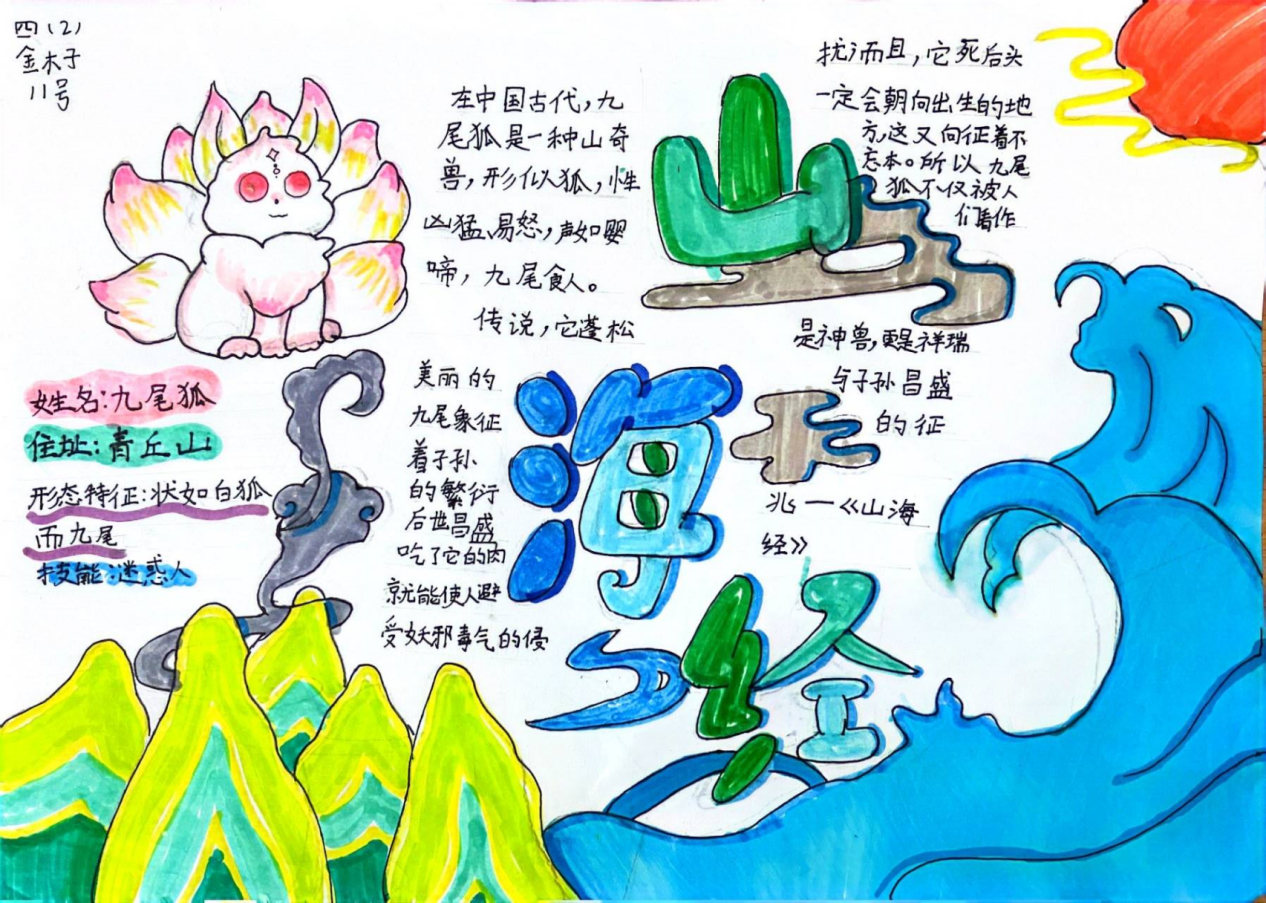 四(2)
金木子
11号
在中国古代,九
尾狐是一种山奇
兽,形似狐,性
凶猛、易怒,声如婴
啼,九尾食人。
传说,它蓬松
美丽的
九尾象征
着子孙
的繁衍
后世昌盛
吃了它的肉
就能使人避
受妖邪毒气的侵
扰,而且,它死后头
一定会朝向出生的地
方,这又向征着不
忘本。所以九尾
狐不仅被人
们看作
是神兽,更是祥瑞
与子孙昌盛
的征
兆—《山海
经》
山海经
姓名:九尾狐
住址:青丘山
形态特征:状如白狐
而九尾
技能:迷惑人